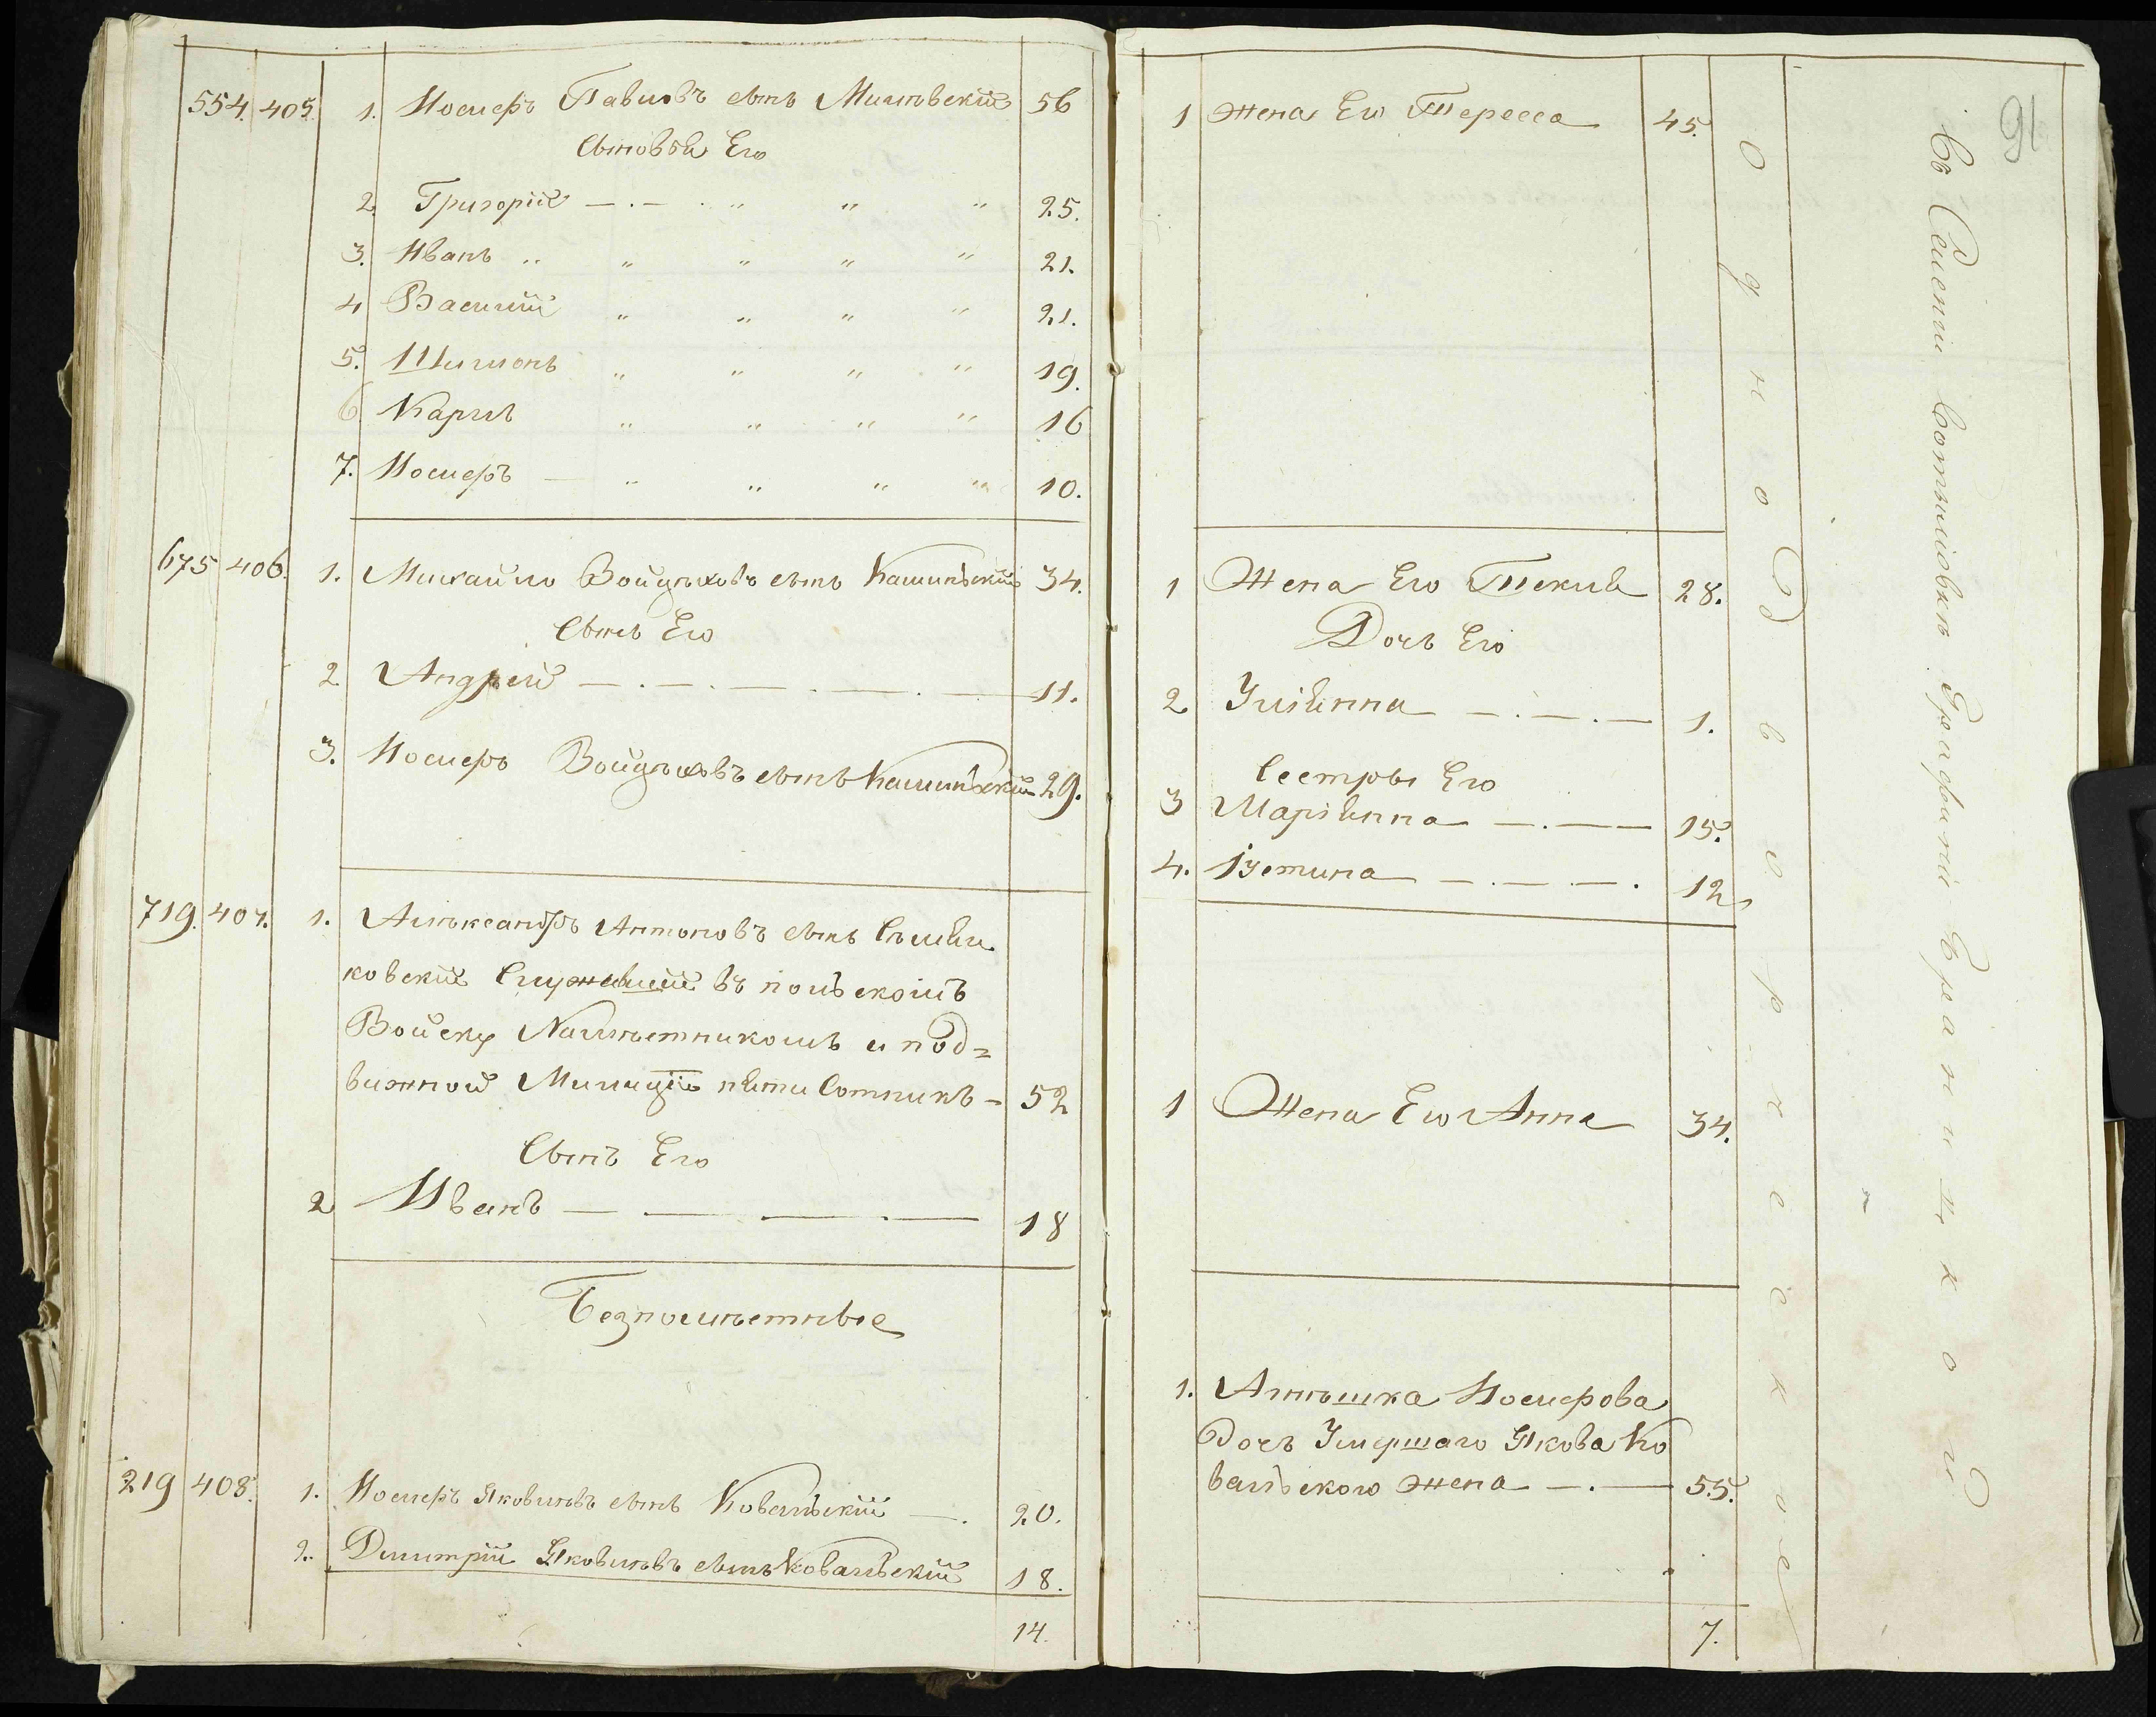 554. 405. 1. Иосифъ Павловъ сынъ Милевскій 56
Сыновья Его
2. Григорій — . — . " " " 25.
3. Иванъ " " " " " 21.
4 Василій " " " " 21.
5. Шимонъ " " " " 19.
6 Карлъ " " " " 16
7. Иосифъ — " " " " 10.
675 406. 1. Михайло Войцѣховъ сынъ 34.
Сынъ Его
2 Андрей — . — . — . — . — 11.
3. Иосифъ Войцѣховъ сынъ 29.
719. 407. 1. Алѣксандръ Антоновъ сынъ
ковскій Служившій въ польскомъ
Войску Намѣстникомъ и под=
вижной Милиціи пяти Сотникъ — 52
Сынъ Его
2 Иванъ — — — . — 18
Безпомѣстные
219 408. 1. Иосифъ Яковлѣвъ сынъ Ковальскій — . 20.
2. Дмитрій Яковлѣвъ сынъ Ковальскій 18.
14.
91
1 Жена Его Тересса 45.
1 Жена Его Текля 28.
Дочь Его
2 Уліянна — . — . — 1.
Сестры Его
3 Маріянна — . — — 15.
4. Іустина — . — . — . 12.
1 Жена Его Анна 34.
1. Агнѣшка Иосифова
Дочь Умершаго Якова Ко
вальского жена — . — 55.
7.
Однаодворческое
Въ Селеніи Вотылѣвкѣ Графини Браницкой